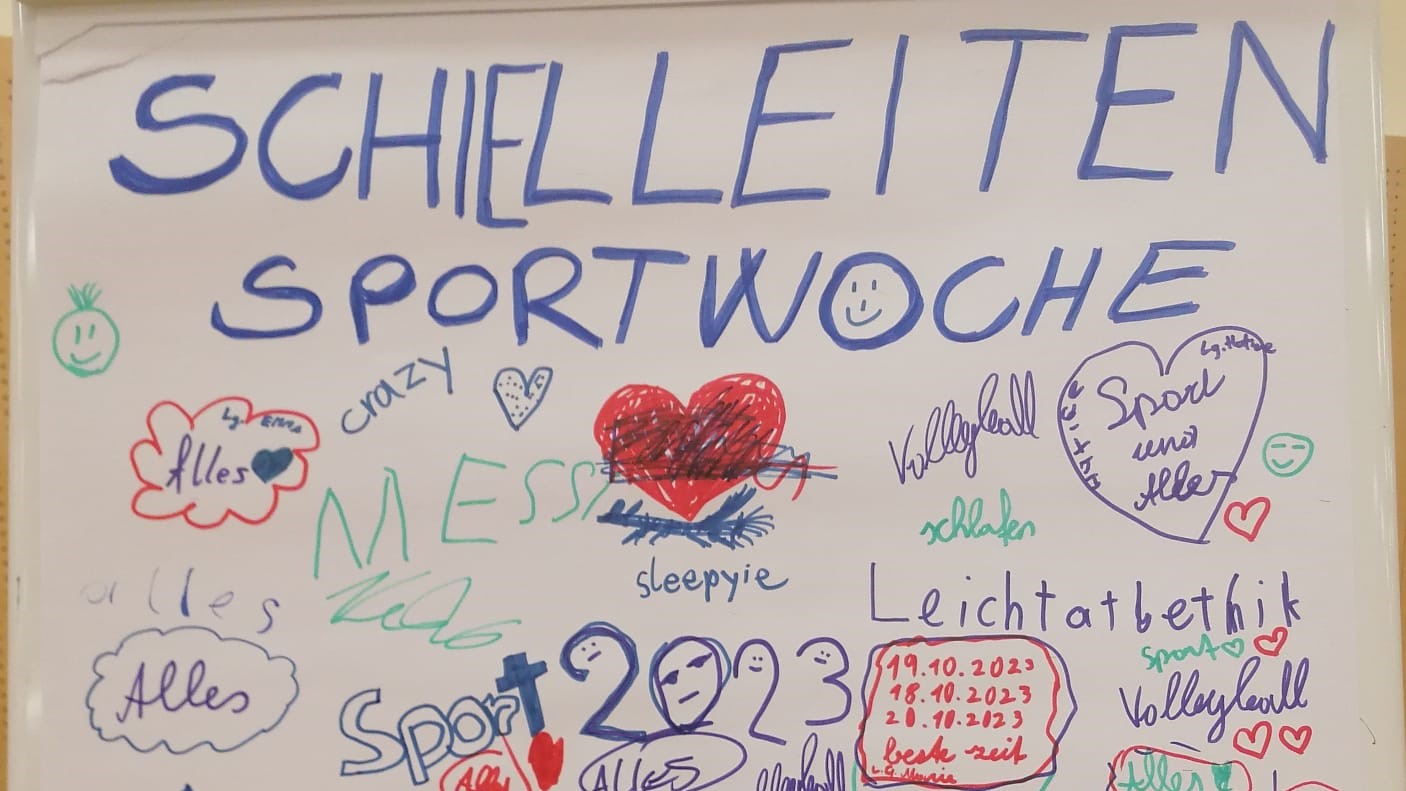 SCHIELLEITEN
SPORTWOCHE
crazy
Lg. Emma
Alles
MESSI
Volleyball
Sport
und
Alles
schlafen
sleepyie
alles
Leichtatbethik
Alles
Sport
2023
19.10.2023
18.10.2023
20.10.2023
beste zeit
L.G. Marie
sport
Volleyball
Alles
ALLES
Alles